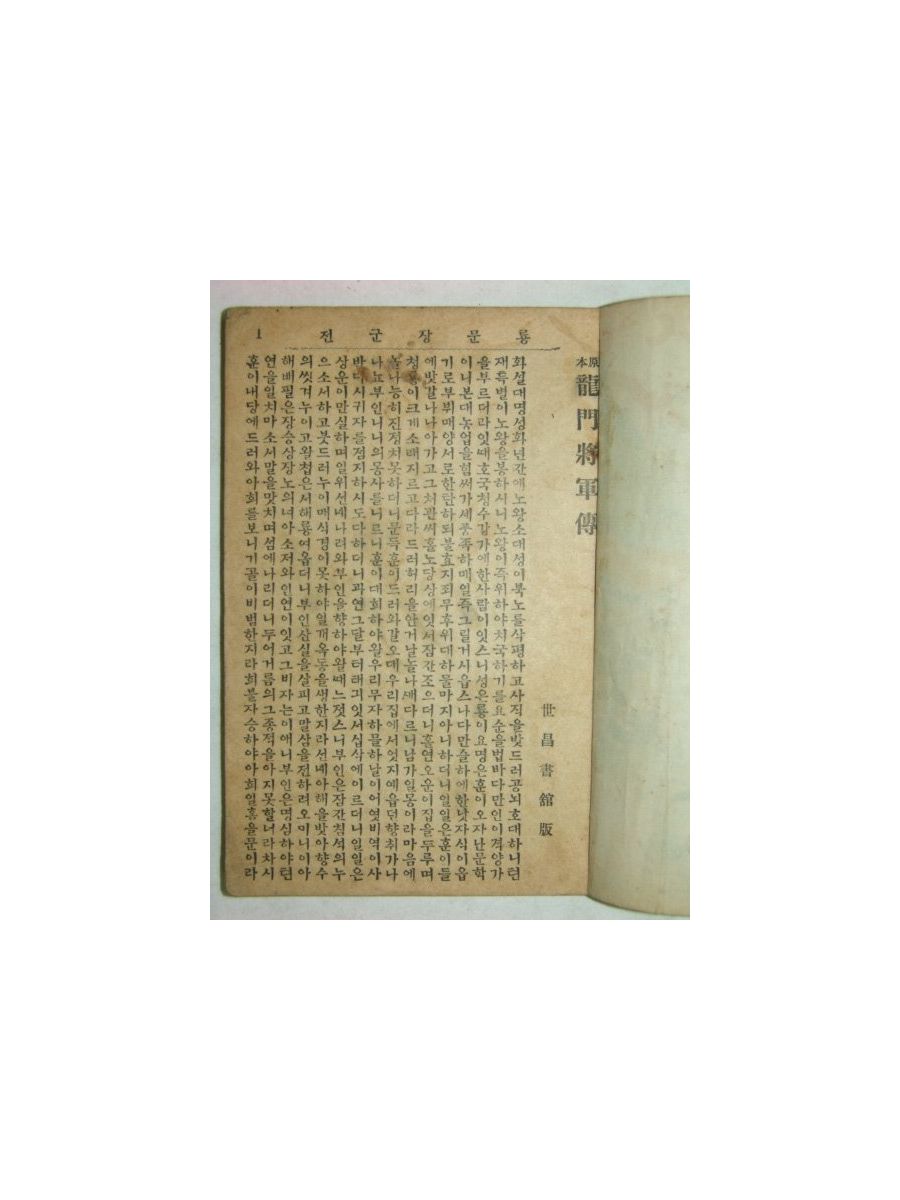 룡문장군전 1
原本 龍門將軍傳
世昌書舘版
화셜대명셩화년간애노왕소대셩이북노를삭평하고사직을밧드러공뇌호대하니텬
재특별이노왕을봉하시니노왕이즉위하야치국하기를요순을법바다만인이격양가
을부르더라잇때호국쳐수갑가에한사람이잇스니셩은룡이요명은훈이오자난문학
이니본대농업을힘써가셰풍족하매일즉그릴거시읍스나다만슬하에한낫자식이읍
기로부뷔매양서로한탄하되불효지죄무후위대하물마지아니하더니일일은훈이들
에밧갈나나아가고그쳐관씨홀노당상에잇서잠간조으더니홀연오운이집을두루며
쳥룡이크게소래지르고다라드러허리을안거날놀나깨다르니남가일몽이라마음에
놀나능히진졍치못하더니문득훈이드러와갈오대우리집에서엇지예읍던향취가나
나뇨부인니니의몽사를니르니훈이대희하야왈우리무자하믈하날이어엿비역이사
반다시귀자를졈지하시도다하더니과연그달부터태긔잇서십삭에이르더니일일은
상운이만실하며일위션녜나려와부인을향하야왈때느졋스니부인은잠간침셕의누
으소서하고붓드러누이매식경이못하야일개옥동을생한지라션녜아해을밧아향수
의씻겨누이고왈쳡은서해룡여옵더니부인산실을살피고말삼을젼하려오미니이아
해배필은장승상장노의녀아소져와인연이잇고그비자는이애니부인은명심하야텬
연을일치마소서말을맛치며섬에나리더니두어거름의그종젹을아지못할너라차시
훈이내당에드러와아희를보니기골이비범한지라희불자승하야아희일홈을문이라